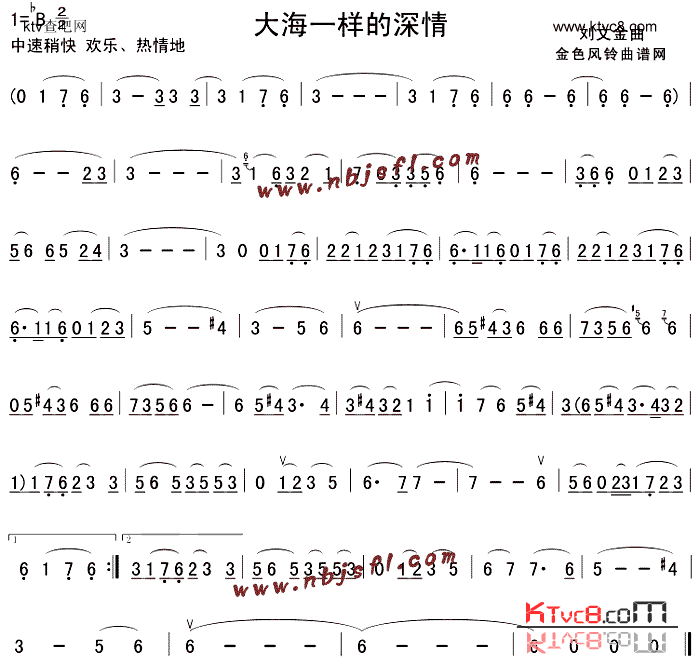 1=♭B 2/2
ktv查吧网
大海一样的深情
www.ktvc8.com
刘文金曲
中速稍快 欢乐、热情地
金色风铃曲谱网
(0 1 7 6 | 3 - 33 3 | 3 1 7 6 | 3 - - - | 3 1 7 6 | 6 6 - 6 | 6 - - 6) |
6 - - 23 | 3 - - - | 31 632 1 | 7 03356 | 6 - - - | 366 0123 |
www.nbjsfl.com
56 65 24 | 3 - - - | 3 0 0176 | 22123176 | 6·1160176 | 22123176 |
6·1160123 | 5 - - #4 | 3 - 5 6 | 6 - - - | 65#436 66 | 7356 6 6 |
05#436 66 | 73566 6 - | 6 5#43· 4 | 3#4321 1 | 1 76 5#4 | 3(65#43·432 |
1)17623 3 | 56 53553 | 0 123 5 | 6· 77 - | 7 - - 6 | 560231723 |
1 2
6 176 :‖ 317623 3 | 56 53553 | 0 123 5 | 6 77· 6 | 560231723 |
www.nbjsfl.com
KTvc8.com
3 - 5 6 | 6 - - - | 6 - - - | 6 0 0 0 ‖